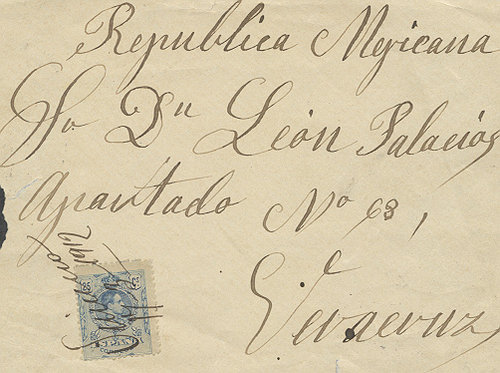 Republica Mejicana
Sr Dn León Palacios
Apartado No 63,
Veracruz